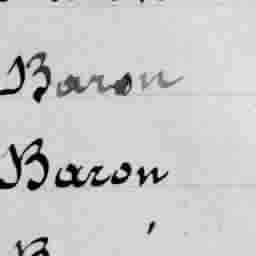 Baron
Baron